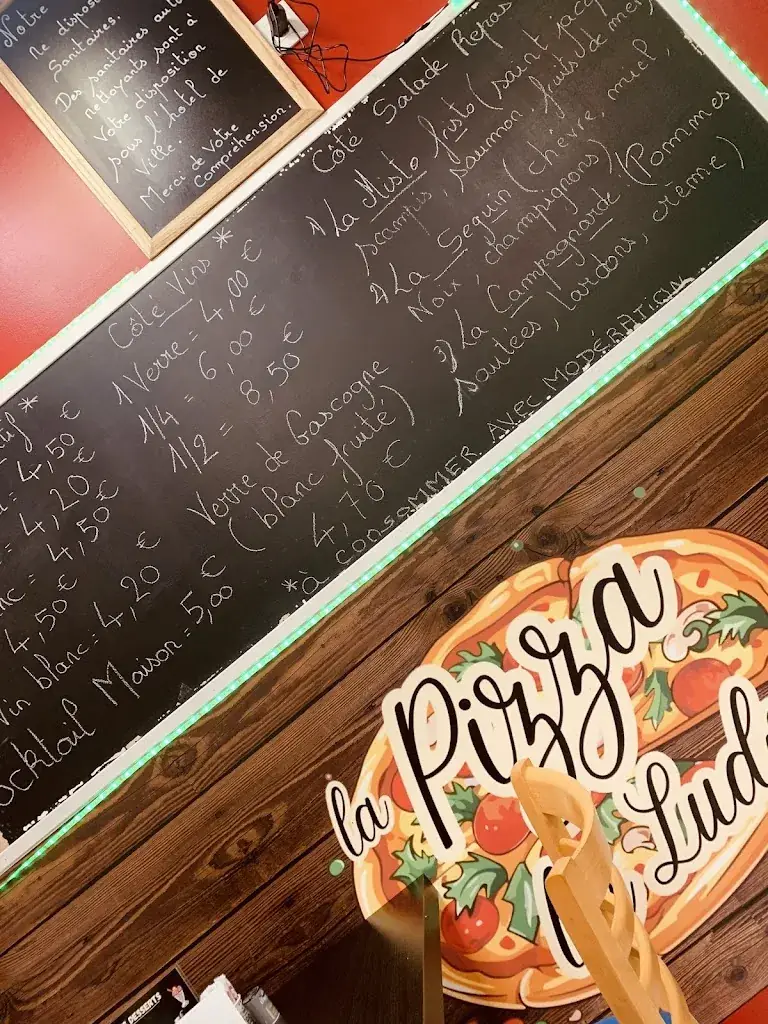 Notre
ne dispos
Sanitaires.
Des sanitaires auto
nettoyants sont à
Votre disposition
sous l'hotel de
Ville.
Merci de Votre
compréhension.
= 4,50 €
= 4,20 €
nc = 4,50 €
4,50 €
Vin blanc = 4,20 €
ocktail Maison = 5,00 €
Côté Vins *
1 Verre = 4,00 €
1/4 = 6,00 €
1/2 = 8,50 €
Verre de Gascogne
(blanc fruité)
4,70 €
Côté Salade Repas
1) La Misto fristo (saint jacq
scampis, saumon fruits de mer,
2) La Seguin (chèvre, miel,
Noix, champignons)
3) La Campagnarde (Pommes
sautées, lardons, crème)
* à CONSOMMER AVEC MODÉRATION
la Pizza
Ludi
DESSERTS